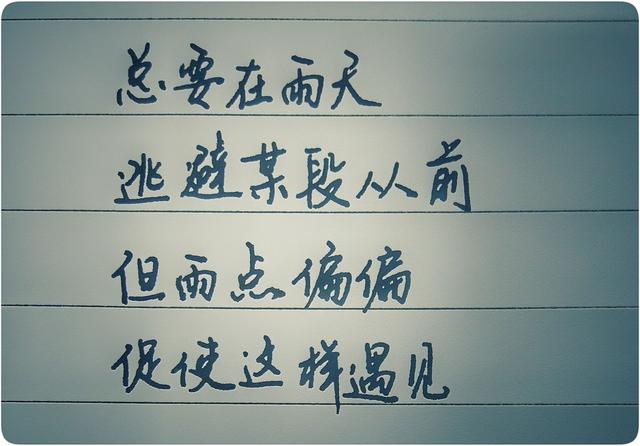 总要在雨天
逃避某段从前
但雨点偏偏
促使这样遇见